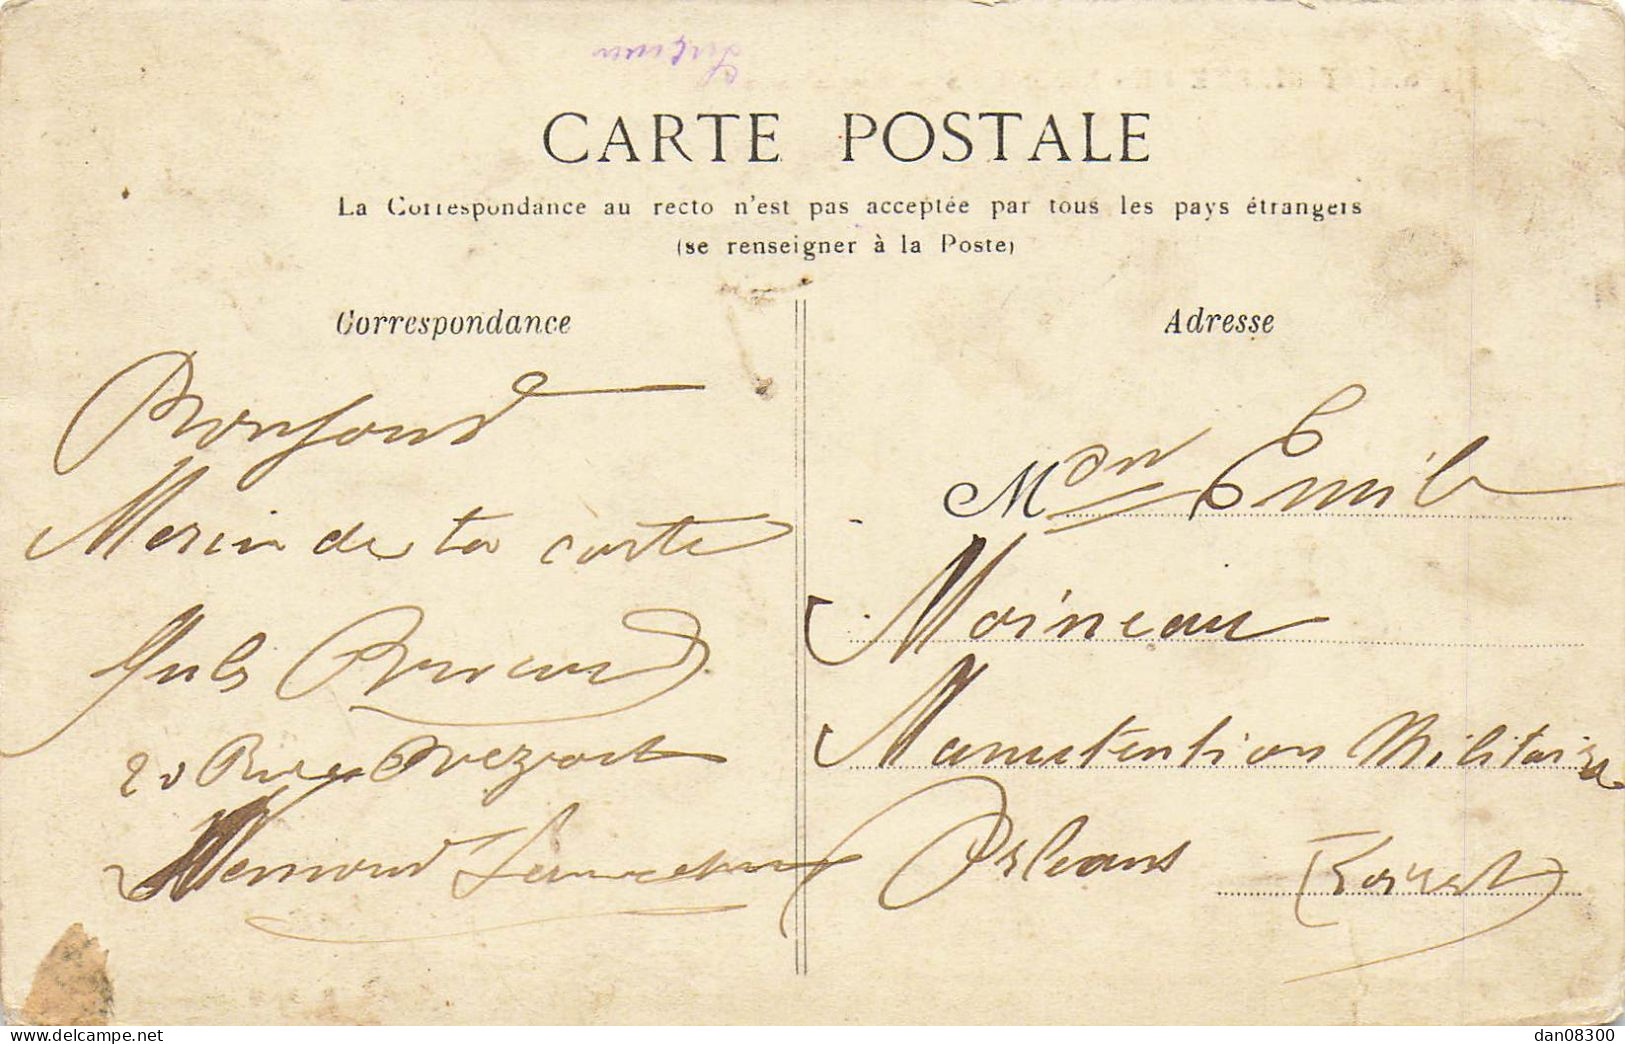 CARTE POSTALE
La Correspondance au recto n'est pas acceptée par tous les pays étrangers
(se renseigner à la Poste)
Correspondance
Adresse
Mersin de ta carte
Jules
20 Rue
Mon Emile
Moineau
Manutention Militaire
Orléans Loiret
delcampe.net
dan08300